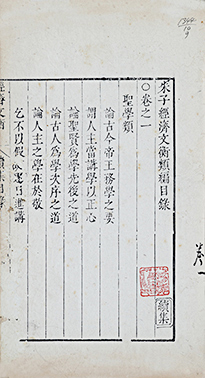 朱子經濟文衡類編目錄
○卷之一
聖學類
論古今帝王務學之要
謂人主當講學以正心
論聖賢爲學先後之道
論古人爲學次序之道
論人主之學在於敬
乞不以假故逐日進講
續集